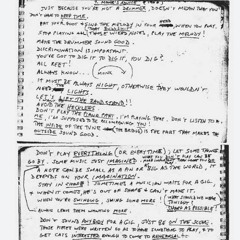 JUST BECAUSE YOU'RE NOT A DRUMMER, DOESN'T MEAN THAT YOU
DON'T HAVE TO KEEP TIME.
PAT YOUR FOOT & SING THE MELODY IN YOUR HEAD, WHEN YOU PLAY.
STOP PLAYING ALL THOSE WEIRD NOTES, PLAY THE MELODY!
MAKE THE DRUMMER SOUND GOOD.
DISCRIMINATION IS IMPORTANT.
YOU'VE GOT TO DIG IT TO DIG IT, YOU DIG?
ALL REET!
ALWAYS KNOW....
IT MUST BE ALWAYS NIGHT, OTHERWISE THEY WOULDN'T
NEED THE LIGHTS.
LET'S LIFT THE BAND STAND!!
AVOID THE HECKLERS.
DON'T PLAY THE PIANO PART, I'M PLAYING THAT. DON'T LISTEN TO ME,
I'M SUPPOSED TO BE ACCOMPANYING YOU!
THE INSIDE OF THE TUNE (THE BRIDGE) IS THE PART THAT MAKES THE
OUTSIDE SOUND GOOD.
DON'T PLAY EVERYTHING (OR EVERY TIME); LET SOME THINGS
GO BY. SOME MUSIC JUST IMAGINED. WHAT YOU DON'T PLAY CAN BE
MORE IMPORTANT THAN WHAT YOU DO.
A NOTE CAN BE SMALL AS A PIN OR AS BIG AS THE WORLD, IT
DEPENDS ON YOUR IMAGINATION.
STAY IN SHAPE! SOMETIMES A MUSICIAN WAITS FOR A GIG,
& WHEN IT COMES, HE'S OUT OF SHAPE & CAN'T MAKE IT.
WHEN YOU'RE SWINGING, SWING SOME MORE!
ALWAYS LEAVE THEM WANTING MORE.
DON'T SOUND ANYBODY FOR A GIG, JUST BE ON THE SCENE.
THOSE PIECES WERE WRITTEN SO AS TO HAVE SOMETHING TO PLAY, & TO
GET CATS INTERESTED ENOUGH TO COME TO REHEARSAL.